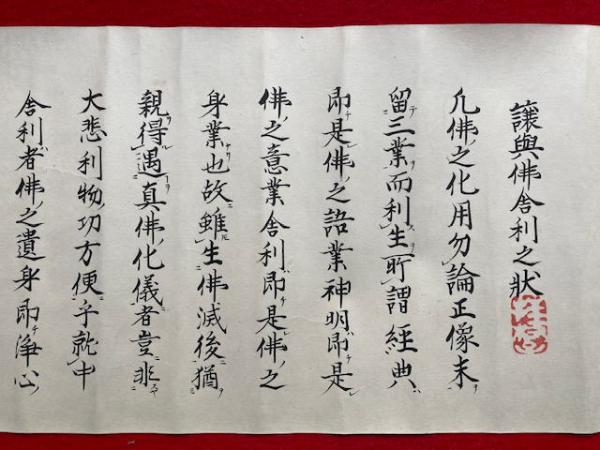 讓與佛舎利之狀
凡佛之化用勿論正像末
留三業而利生所謂經典
即是佛之語業神明即是
佛之意業舎利即是佛之
身業也故雖生佛滅後猶
親得遇真佛化儀者豈非
大悲利物功方便乎就中
舎利者佛之遺身即淨心